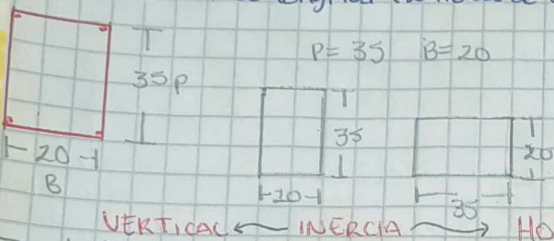 P= 35 B= 20
35 P
20
B
35
20
20
35
VERTICAL ← INERCIA → HO